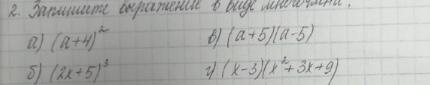 2. Запишите выражение в виде многочлена:
а) (a+4)² в) (a+5)(a-5)
б) (2x+5)³ г) (x-3)(x²+3x+9)